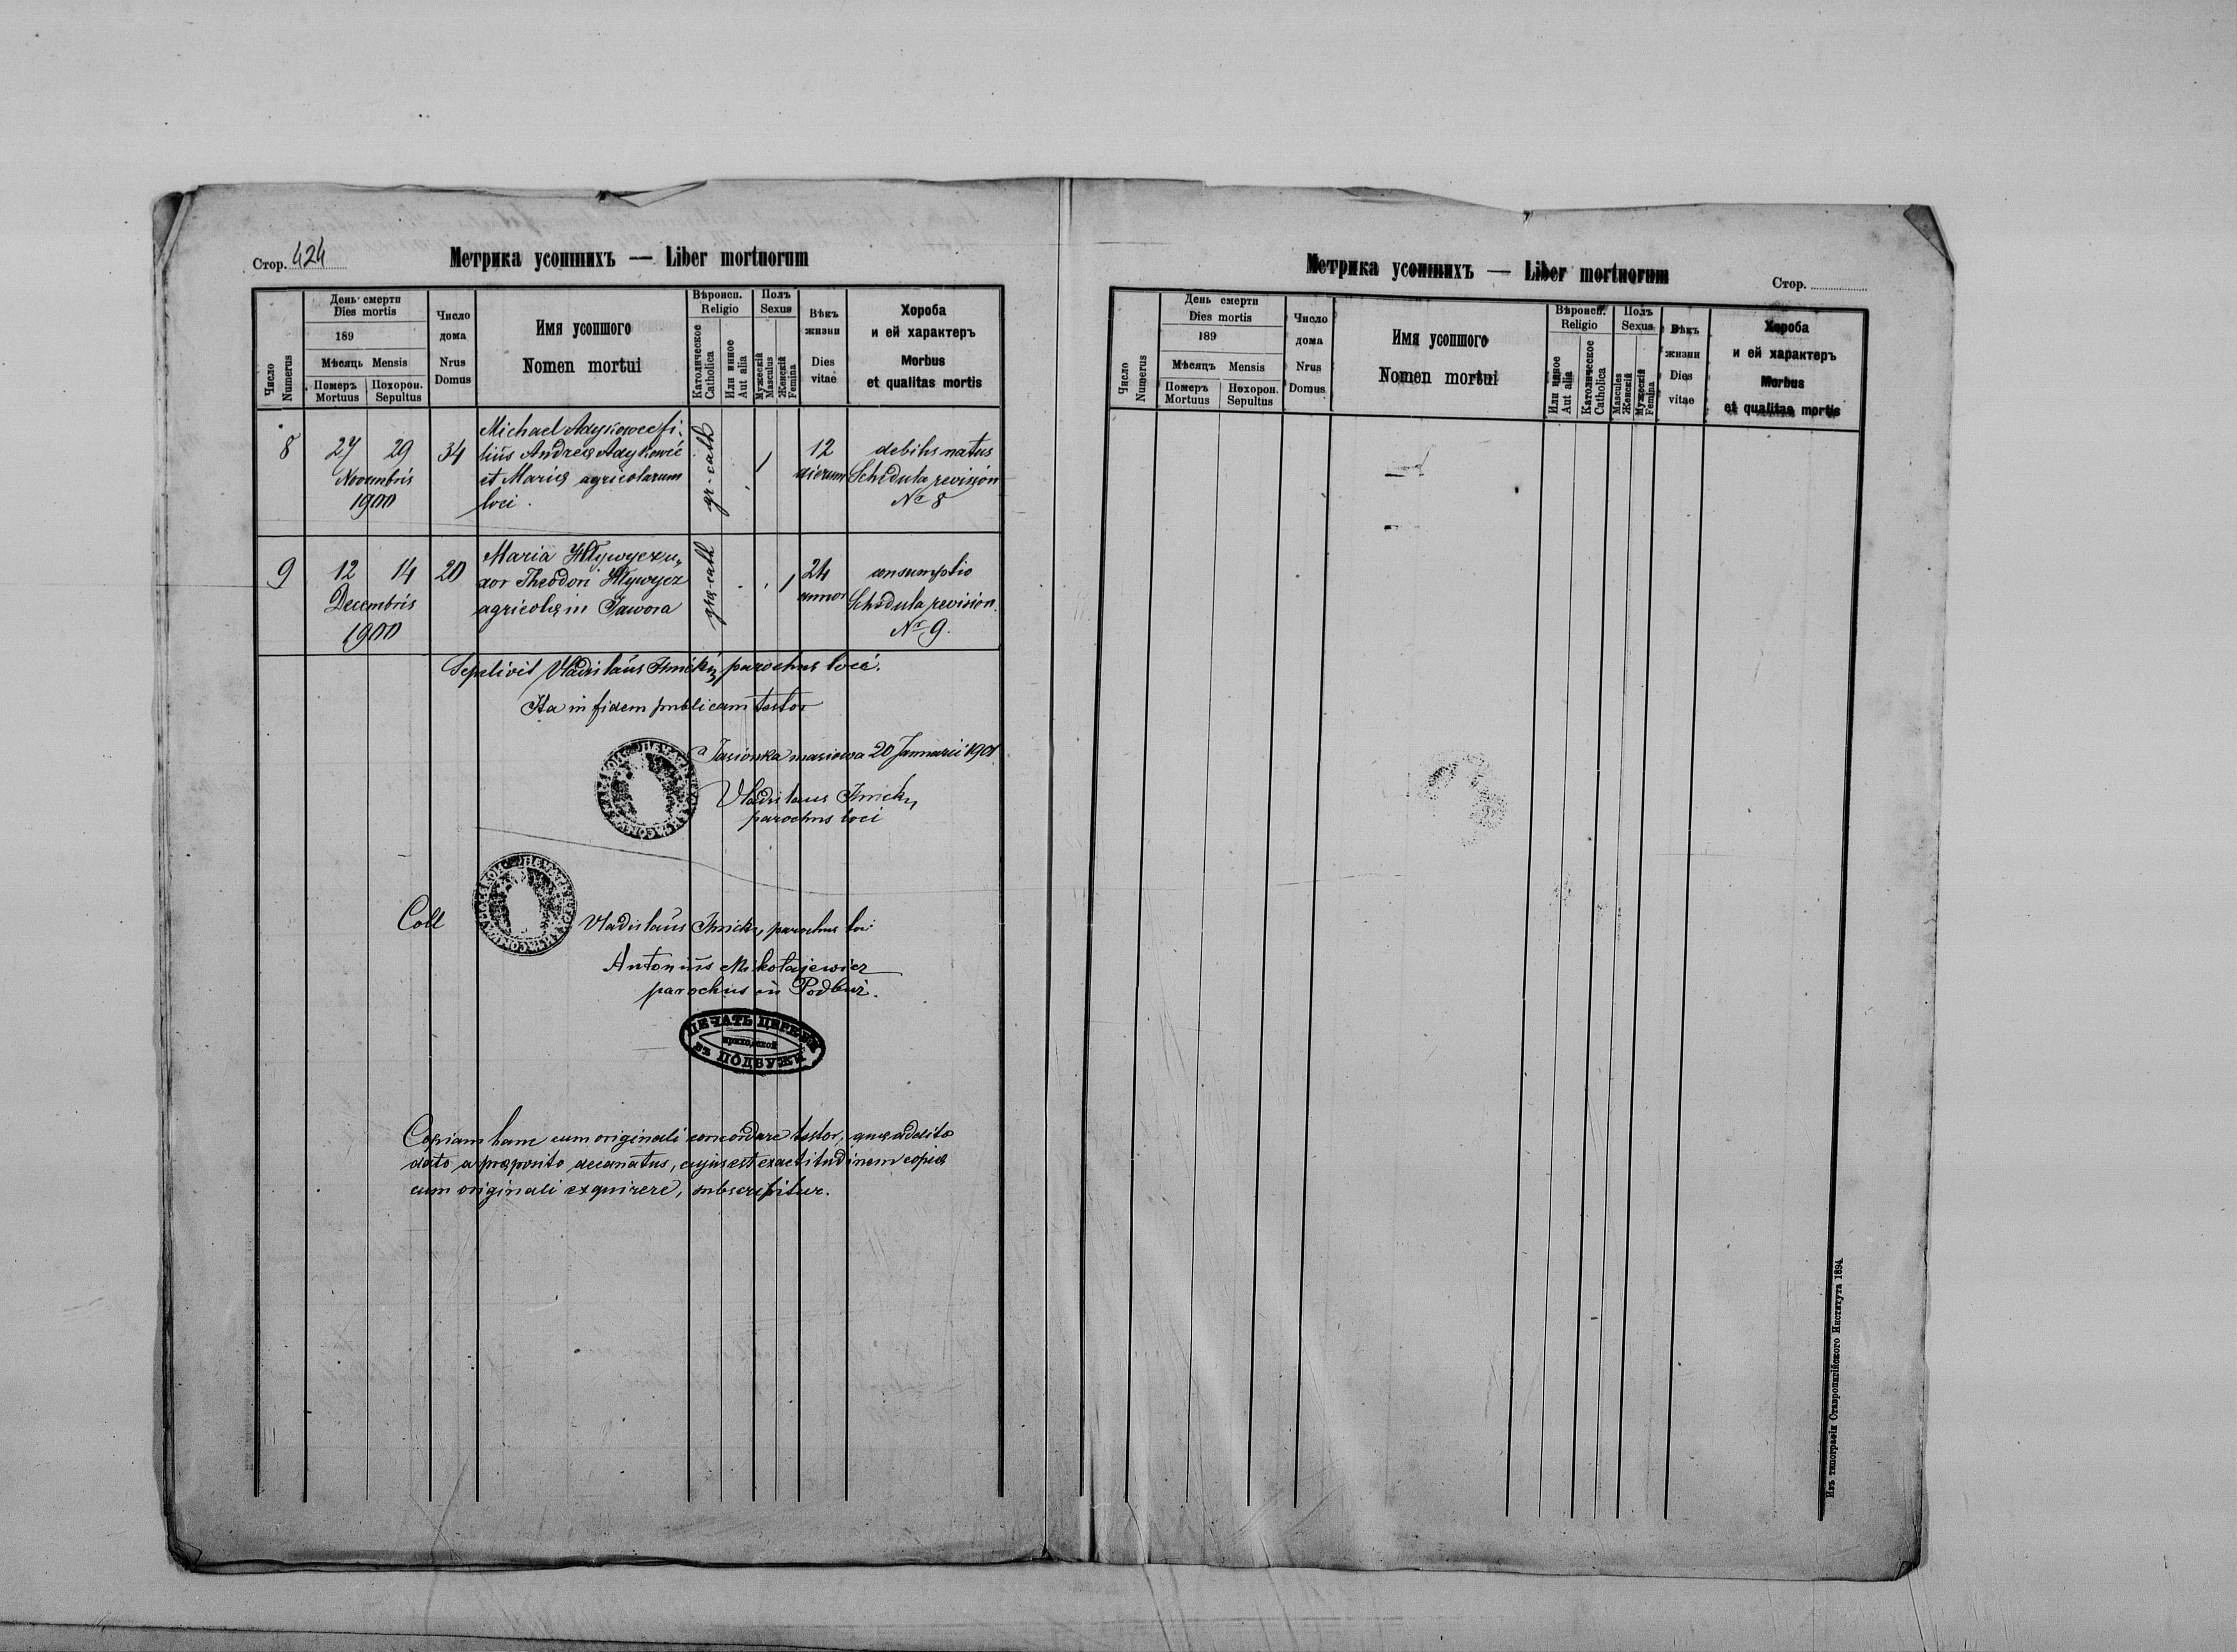 Стор. 424
Метрика усопшихъ — Liber mortuorum
Число Numerus
День смерти
Dies mortis
189
Мѣсяць Mensis
Померъ Mortuus
Похорон. Sepultus
Число дома
Nrus Domus
Имя усопшого
Nomen mortui
Вѣроисп.
Religio
Католическое Catholica
Или инное Aut alia
Полъ
Sexus
Мужескій Masculus
Женскій Femina
Вѣкъ жизни
Dies vitae
Хороба
и ей характеръ
Morbus
et qualitas mortis
8
27 29
Novembris
1900
34
Michael Adykowec fi-
lius Andreę Adykowec
et Marię agricolarum
loci.
gr-cath
12
dierum
debilis natus
Schedula revision
No 8
9
12 14
Decembris
1900
20
Maria Hlywycz u„
xor Theodori Hlywycz
agricolę in Jawora
gre-cath
24
annor
consumptio
Schedula revision.
Nr 9.
Sepelivit Vladislaus parochus loci.
Ita in fidem publicam testor
Jasionka masiowa 20 Januarii 1901
Vladislaus
parochus loci
Coll
Vladislaus parochus loci
Antonius Mikołajewicz
parochus in Podbuż.
ПЕЧАТЬ ЦЕРКВИ
приходской
въ ПОДБУЖИ
Copiam hanc cum originali concordare testor, quę addito
dato a pręposito decanatus, cujus est exactitudinem copię
cum originali exquirere, subscribitur.
Метрика усопшихъ — Liber mortuorum
Стор.
Число Numerus
День смерти
Dies mortis
189
Мѣсяць Mensis
Померъ Mortuus
Похорон. Sepultus
Число дома
Nrus Domus
Имя усопшого
Nomen mortui
Вѣроисп.
Religio
Или инное Aut alia
Католическое Catholica
Полъ
Sexus
Masculus Женскій
Мужескій Femina
Вѣкъ жизни
Dies vitae
Хороба
и ей характеръ
Morbus
et qualitas mortis
Изъ типографіи Ставропигійского Института 1894.